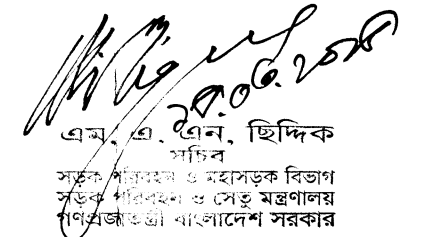 ২৫.০৩.২০১৫
এম, এ, এন, ছিদ্দিক
সচিব
সড়ক পরিবহন ও মহাসড়ক বিভাগ
সড়ক পরিবহন ও সেতু মন্ত্রণালয়
গণপ্রজাতন্ত্রী বাংলাদেশ সরকার